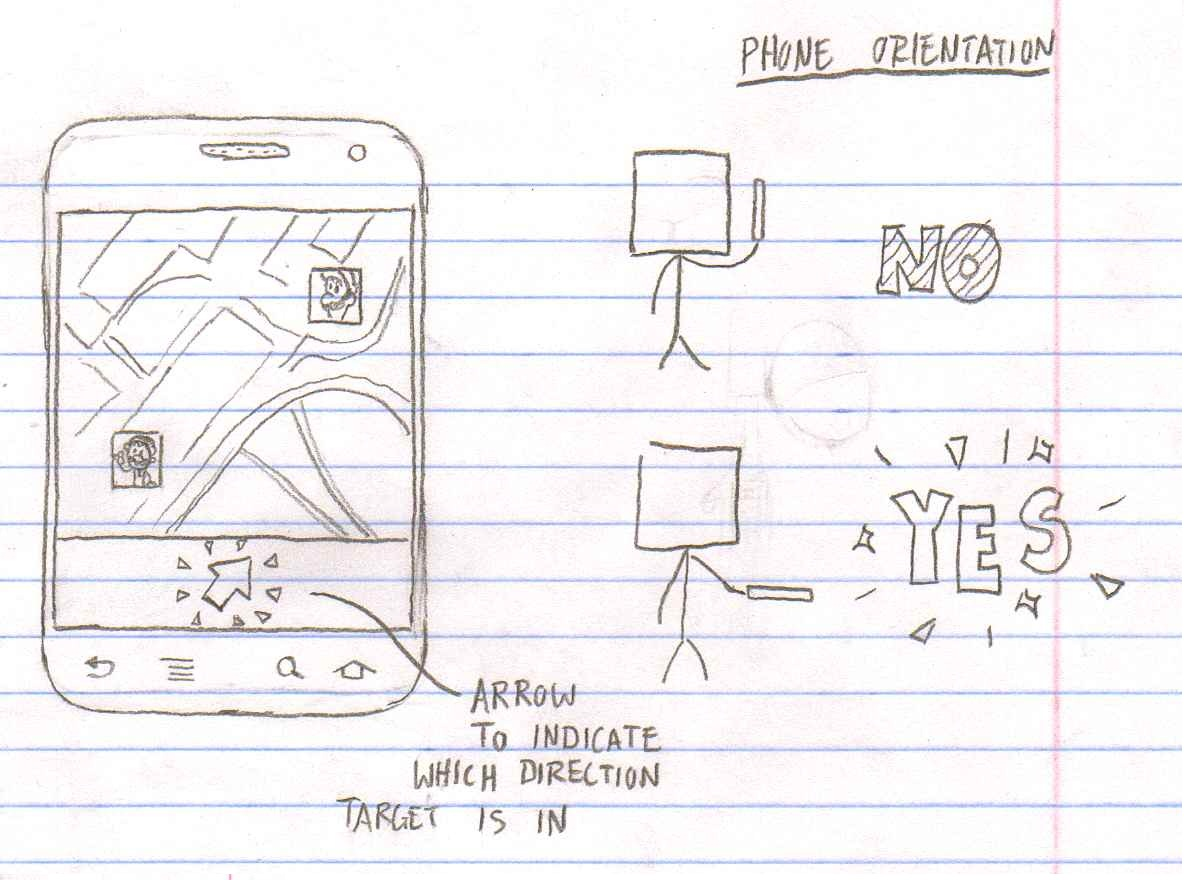 PHONE ORIENTATION
NO
YES
ARROW
TO INDICATE
WHICH DIRECTION
TARGET IS IN